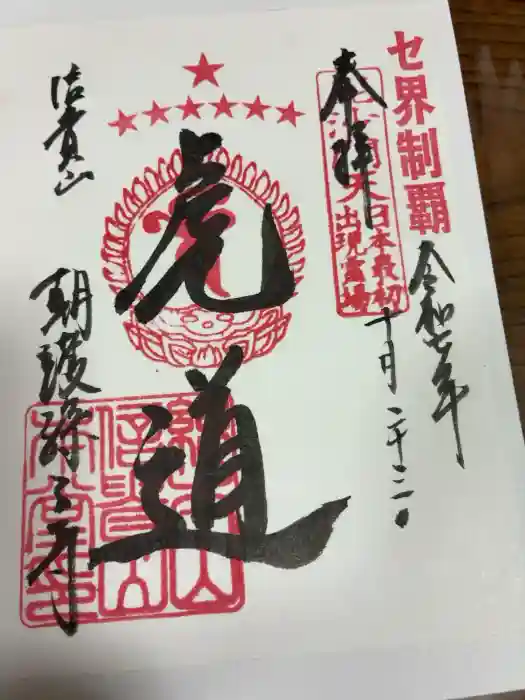 セ界制覇
令和七年
奉拝
毘沙門天日本最初
出現霊場
十月二十二日
虎道
信貴山
朝護孫子寺